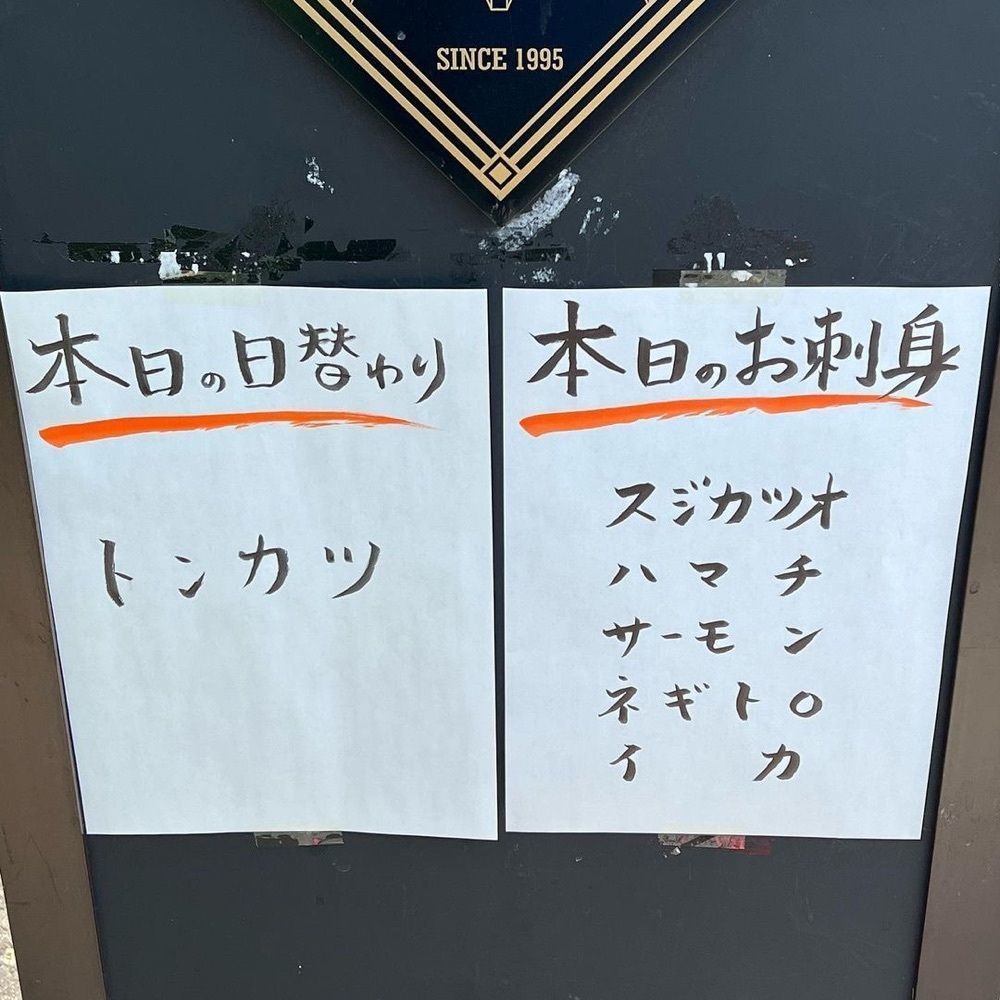 SINCE 1995
本日の日替わり
トンカツ
本日のお刺身
スジカツオ
ハマチ
サーモン
ネギトロ
イカ